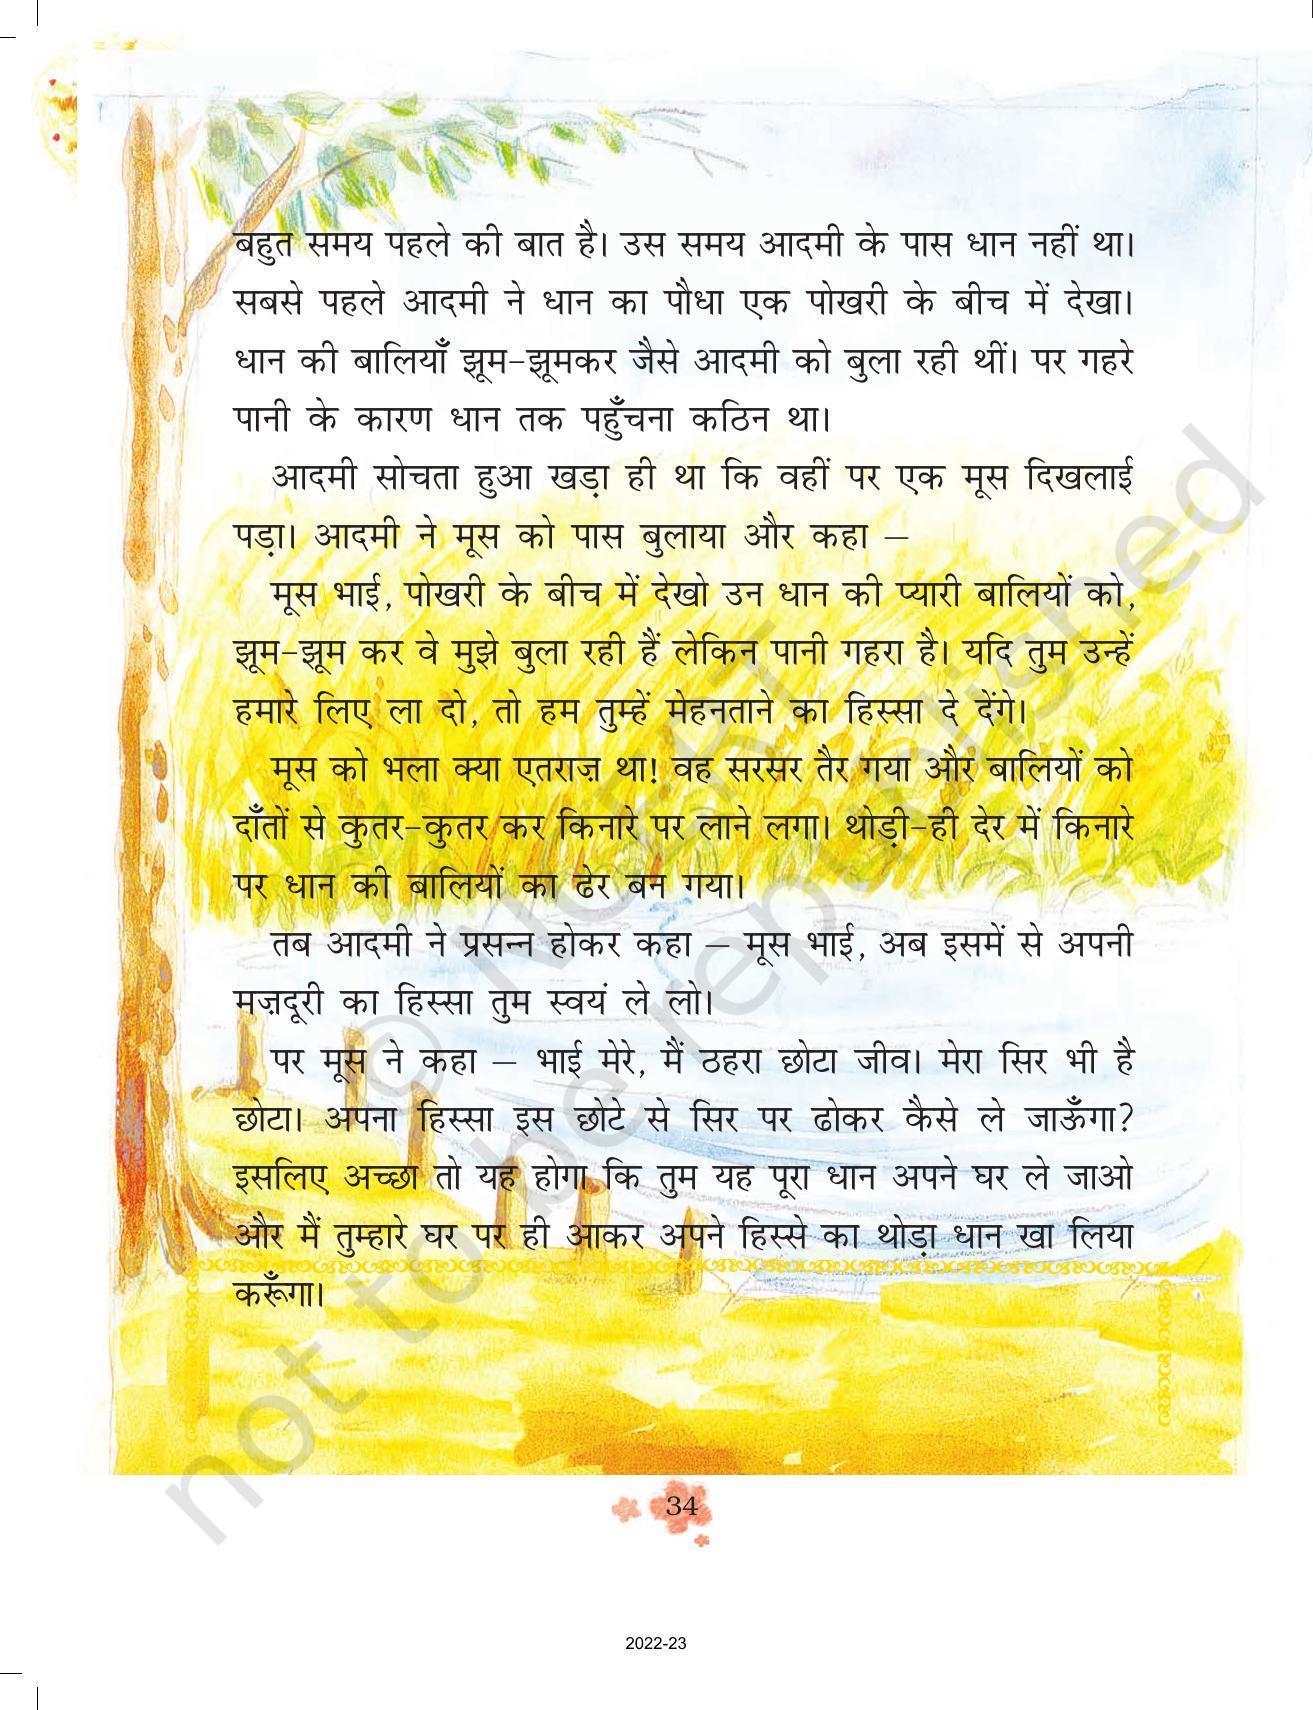 बहुत समय पहले की बात है। उस समय आदमी के पास धान नहीं था।
सबसे पहले आदमी ने धान का पौधा एक पोखरी के बीच में देखा।
धान की बालियाँ झूम-झूमकर जैसे आदमी को बुला रही थीं। पर गहरे
पानी के कारण धान तक पहुँचना कठिन था।
आदमी सोचता हुआ खड़ा ही था कि वहीं पर एक मूस दिखलाई
पड़ा। आदमी ने मूस को पास बुलाया और कहा –
मूस भाई, पोखरी के बीच में देखो उन धान की प्यारी बालियों को,
झूम-झूम कर वे मुझे बुला रही हैं लेकिन पानी गहरा है। यदि तुम उन्हें
हमारे लिए ला दो, तो हम तुम्हें मेहनताने का हिस्सा दे देंगे।
मूस को भला क्या एतराज़ था! वह सरसर तैर गया और बालियों को
दाँतों से कुतर-कुतर कर किनारे पर लाने लगा। थोड़ी-ही देर में किनारे
पर धान की बालियों का ढेर बन गया।
तब आदमी ने प्रसन्न होकर कहा – मूस भाई, अब इसमें से अपनी
मज़दूरी का हिस्सा तुम स्वयं ले लो।
पर मूस ने कहा – भाई मेरे, मैं ठहरा छोटा जीव। मेरा सिर भी है
छोटा। अपना हिस्सा इस छोटे से सिर पर ढोकर कैसे ले जाऊँगा?
इसलिए अच्छा तो यह होगा कि तुम यह पूरा धान अपने घर ले जाओ
और मैं तुम्हारे घर पर ही आकर अपने हिस्से का थोड़ा धान खा लिया
करूँगा।
© NCERT
not to be republished
34
2022-23